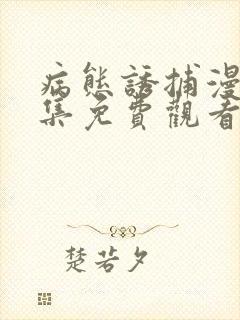 病態誘捕漫
集免費觀看
楚若夕